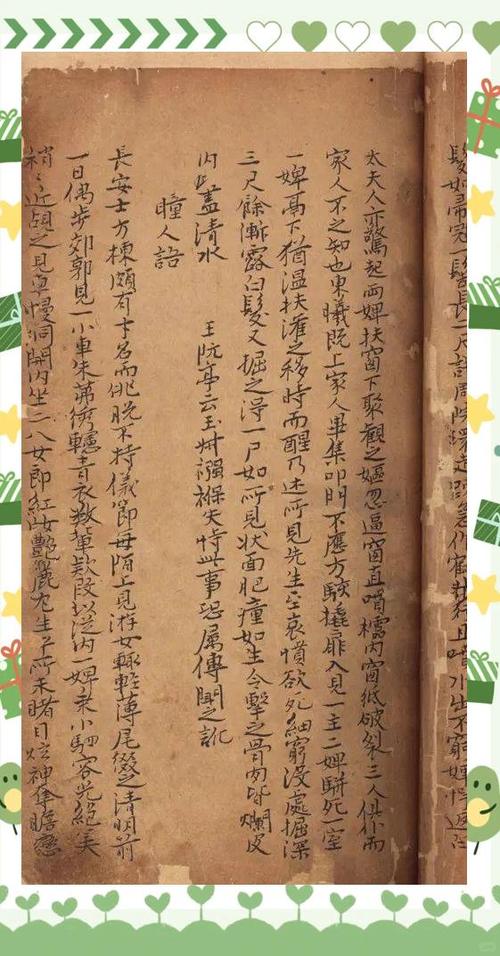 髮如帚冠一髻長二尺許周院環走疎急作行且噴水出不窮婢愕返白
太夫人亦驚起兩婢扶窗下聚觀之嫗忽逼窗直噴櫺內窗紙破裂三人俱仆而
家人不之知也東曦既上家人畢集叩門不應方駭撬扉入見一主二婢駢死一室
一婢鬲下猶溫扶灌之移時而醒乃述所見先生至哀憤欲死細窮沒處掘深
三尺餘漸露白髮又掘之得一尸如所見狀面肥腫如生令擊之骨肉皆爛皮
內盡清水　王阮亭云玉叔襁褓失恃此事恐屬傳聞之訛
瞳人語
長安士方棟頗有才名而佻脫不持儀節每陌上見游女輒輕薄尾綴之清明前
一日偶步郊郭見一小車朱茀繡幰青衣數輩款段以從內一婢乘小駟容光絕美
稍々近覘之見車幔洞開內坐二八女郎紅妝艷麗尤生平所未睹目炫神奪瞻戀